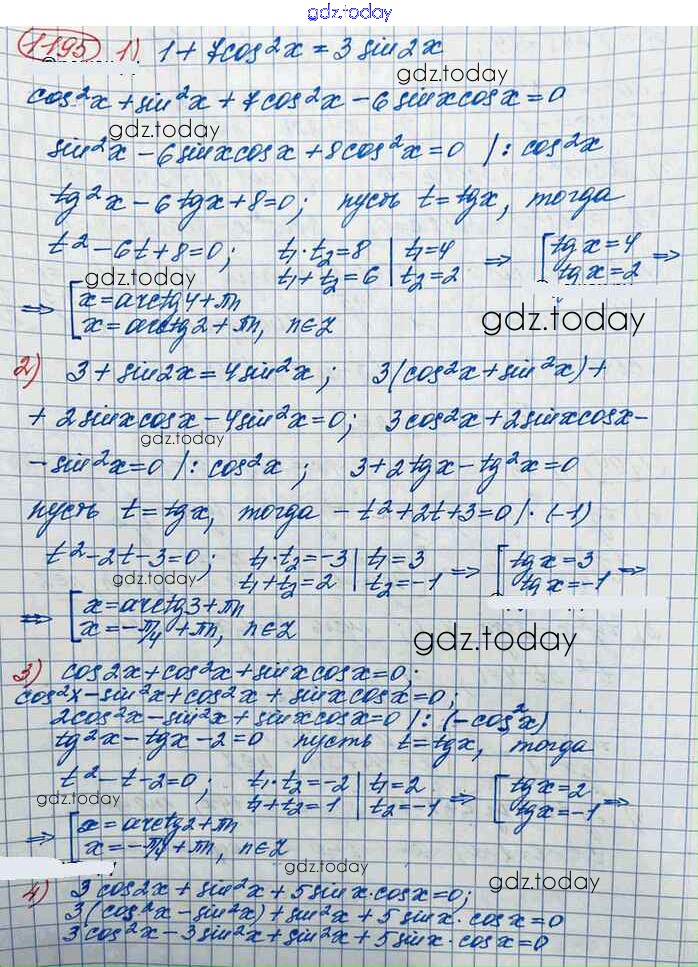 gdz.today
1195 1) 1 + 7cos²x = 3 sin2x
gdz.today
cos²x + sin²x + 7cos²x - 6 sinx cosx = 0
gdz.today
sin²x - 6 sinx cosx + 8cos²x = 0 /: cos²x
tg²x - 6 tgx + 8 = 0; пусть t = tgx, тогда
t² - 6t + 8 = 0; t₁·t₂ = 8 | t₁ = 4 ⇒ [ tgx = 4 ⇒
gdz.today t₁ + t₂ = 6 | t₂ = 2 tgx = 2
⇒ [ x = arctg4 + πn
x = arctg2 + πn, n∈Z gdz.today
2) 3 + sin2x = 4sin²x; 3(cos²x + sin²x) +
+ 2sinxcosx - 4sin²x = 0; 3cos²x + 2sinxcosx -
gdz.today
- sin²x = 0 /: cos²x; 3 + 2tgx - tg²x = 0
пусть t = tgx, тогда - t² + 2t + 3 = 0 /· (-1)
t² - 2t - 3 = 0; t₁·t₂ = -3 | t₁ = 3 ⇒ [ tgx = 3 ⇒
gdz.today t₁ + t₂ = 2 | t₂ = -1 tgx = -1
⇒ [ x = arctg3 + πn
x = -π/4 + πn, n∈Z gdz.today
3) cos2x + cos²x + sinxcosx = 0;
cos²x - sin²x + cos²x + sinxcosx = 0;
2cos²x - sin²x + sinxcosx = 0 /: (-cos²x)
tg²x - tgx - 2 = 0 пусть t = tgx, тогда
t² - t - 2 = 0; t₁·t₂ = -2 | t₁ = 2 ⇒ [ tgx = 2 ⇒
gdz.today t₁ + t₂ = 1 | t₂ = -1 tgx = -1
⇒ [ x = arctg2 + πn
x = -π/4 + πn, n∈Z
gdz.today
4) 3cos2x + sin²x + 5sinx·cosx = 0; gdz.today
3(cos²x - sin²x) + sin²x + 5sinx·cosx = 0
3cos²x - 3sin²x + sin²x + 5sinx·cosx = 0
gdz.today